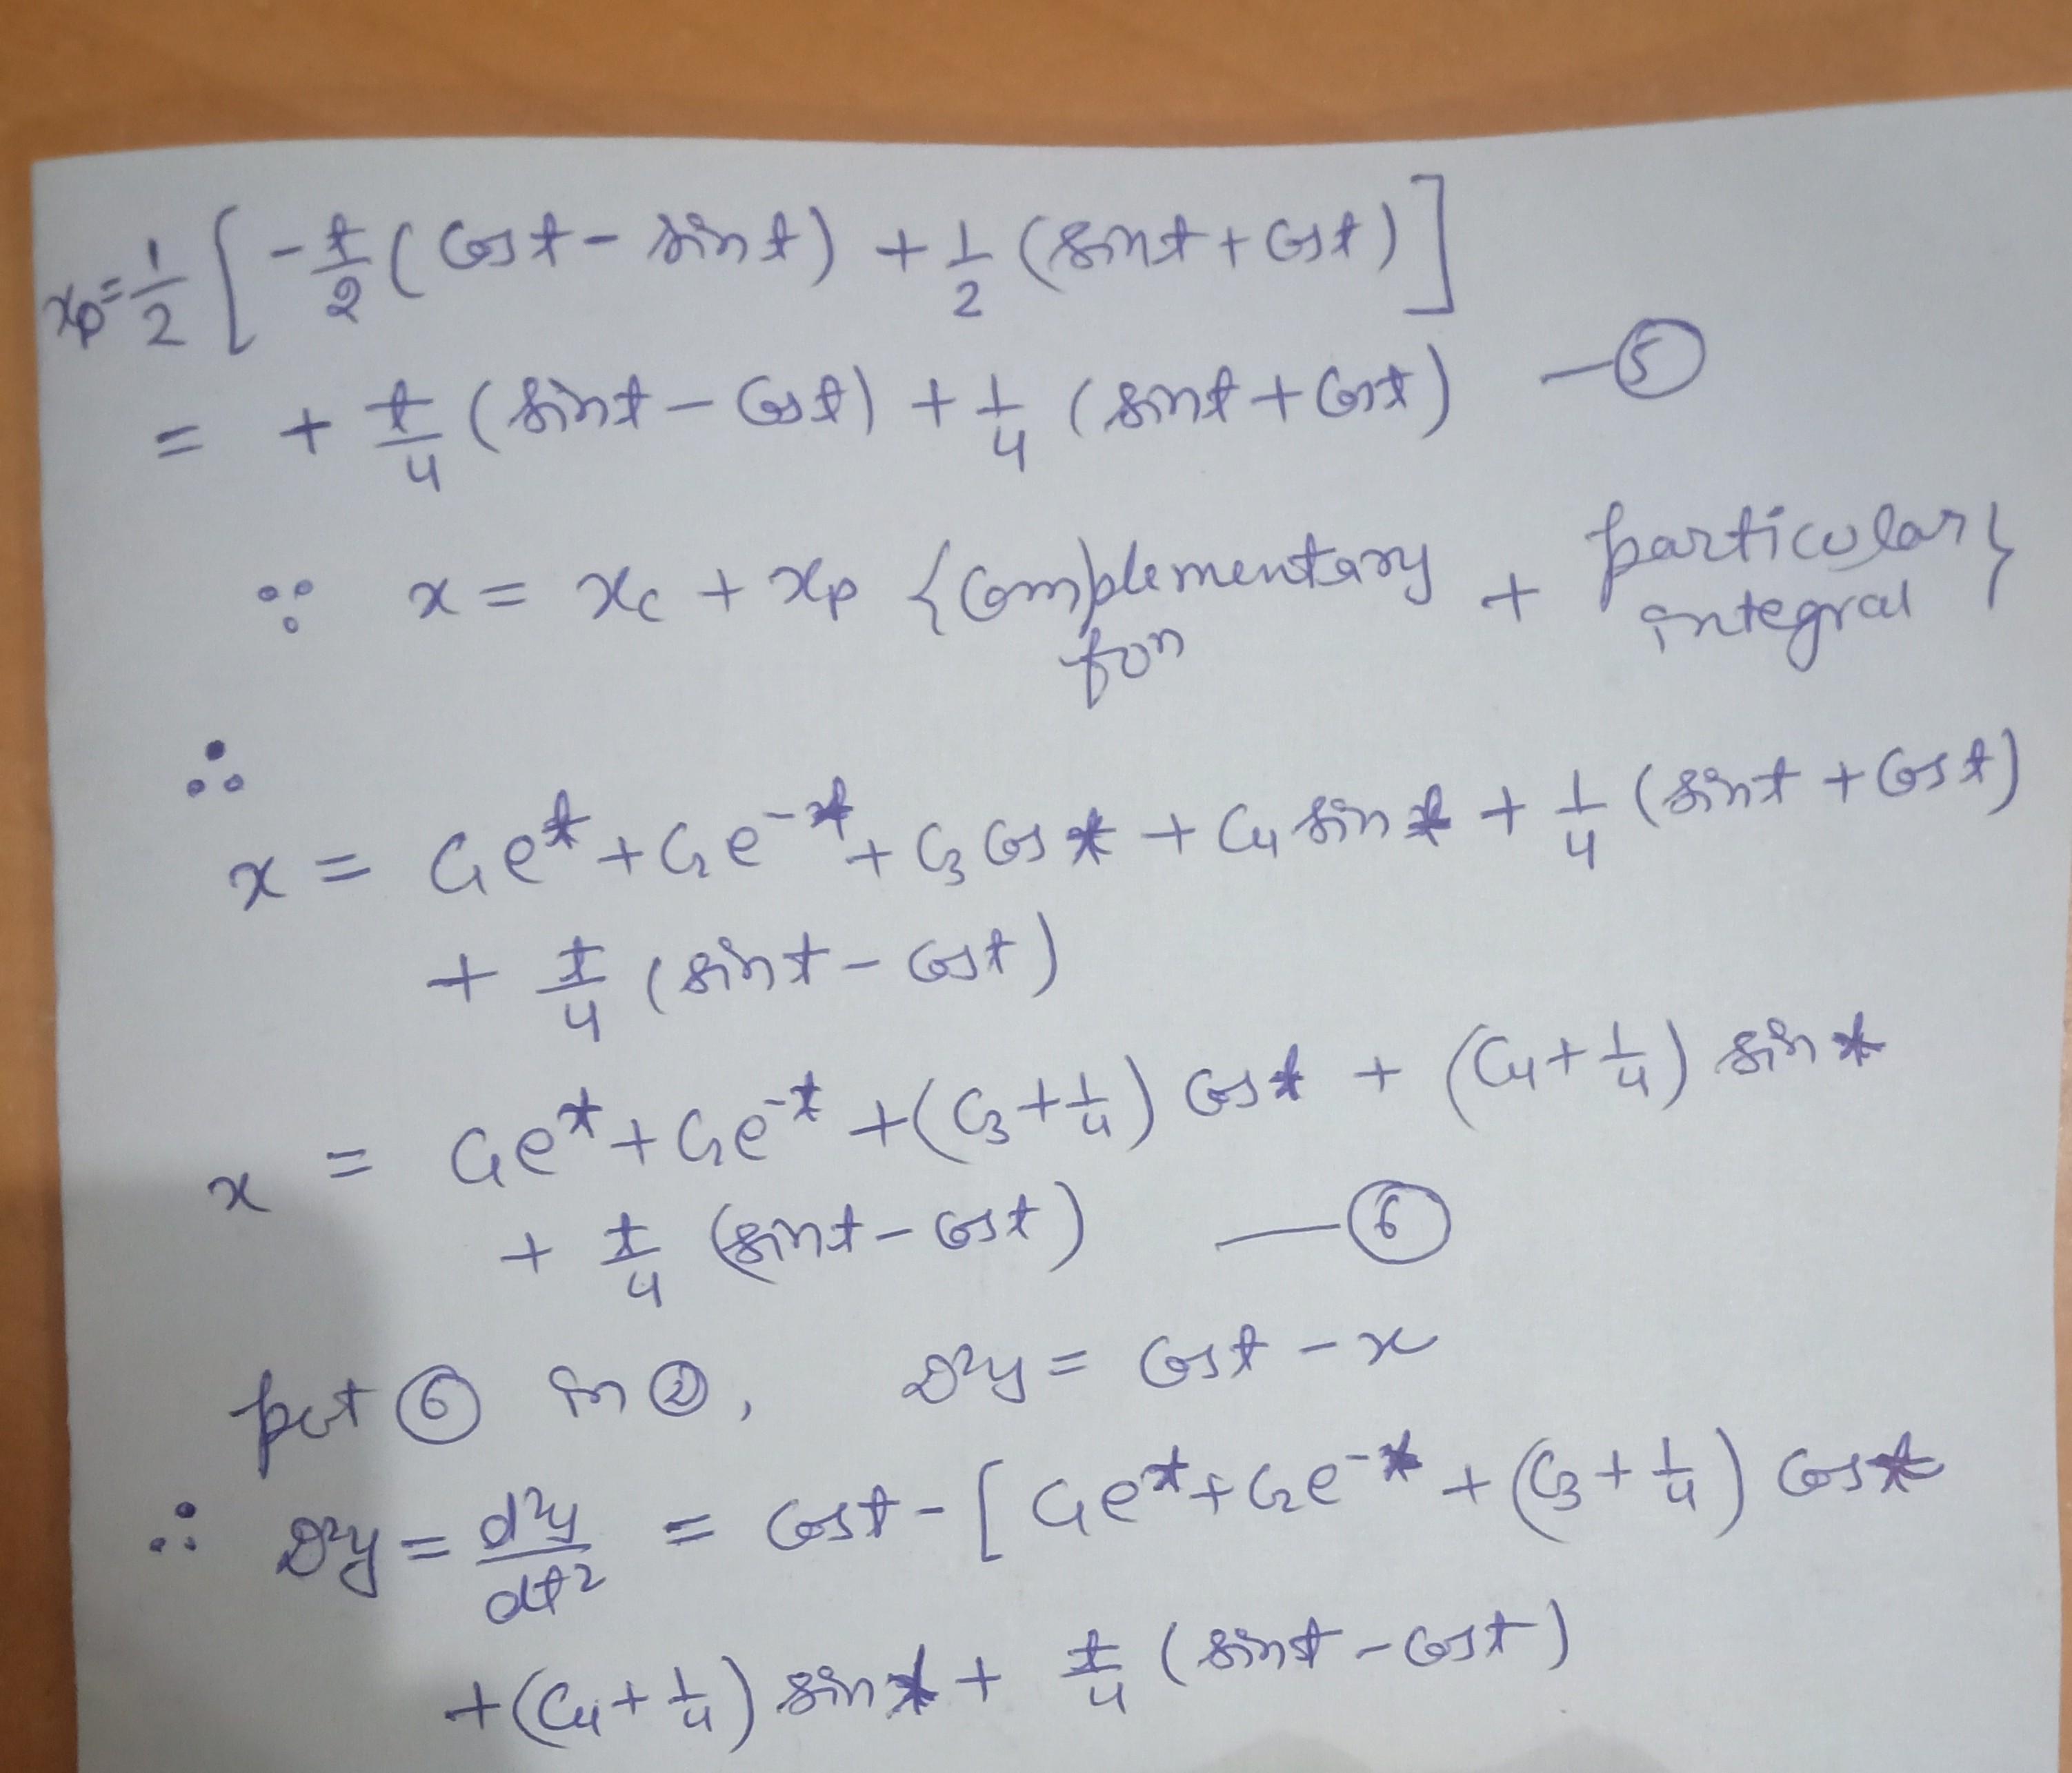 xp = 1/2 [ -t/2 (cost - sint) + 1/2 (sint + cost) ]
= + t/4 (sint - cost) + 1/4 (sint + cost) — ⑤
∵ x = xc + xp { complementary fon + particular integral }
∴
x = C₁e^t + C₂e^-t + C₃ cos t + C₄ sin t + 1/4 (sint + cost)
+ t/4 (sint - cost)
x = C₁e^t + C₂e^-t + (C₃ + 1/4) cos t + (C₄ + 1/4) sin t
+ t/4 (sint - cost) — ⑥
put ⑥ in ②, D²y = cost - x
∴ D²y = d²y/dt² = cost - [ C₁e^t + C₂e^-t + (C₃ + 1/4) cos t
+ (C₄ + 1/4) sin t + t/4 (sint - cost)